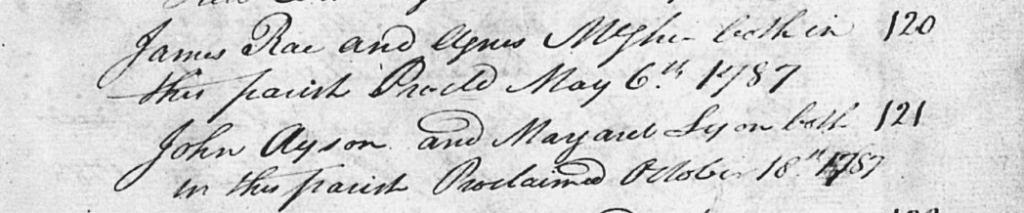 James Rae and Agnes McGhie both in 120
this parish Procld May 6th. 1787
John Ayson and Margaret Lyon both 121
in this parish Proclaimed October 18th. 1787